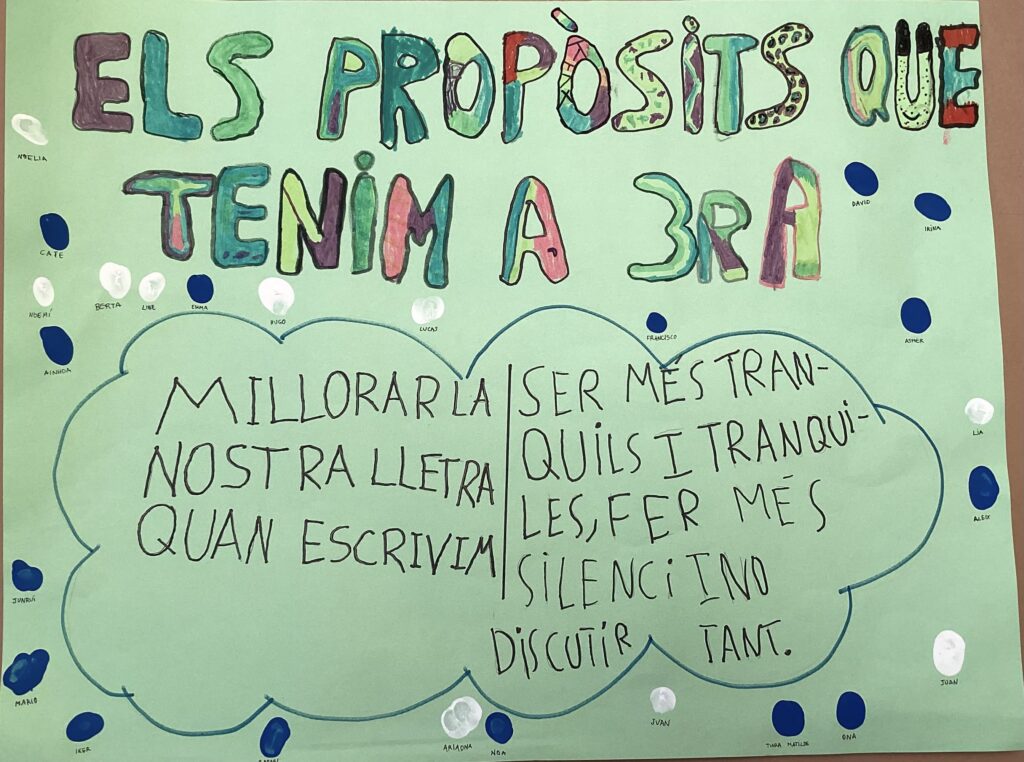 ELS PROPÒSITS QUE
TENIM A 3RA
NOELIA
DAVID
IRINA
CATE
NOEMÍ
BERTA
HUGO
LUCAS
FRANCISCO
AINHOA
MILLORAR LA
NOSTRA LLETRA
QUAN ESCRIVIM
SER MÉS TRAN-
QUILS I TRANQUI-
LES, FER MÉS
SILENCI I NO
DISCUTIR TANT.
LIA
ALEIX
JUNRUI
MARIO
JUAN
IKER
ARIADNA
NOA
JUAN
MATILDE
ONA